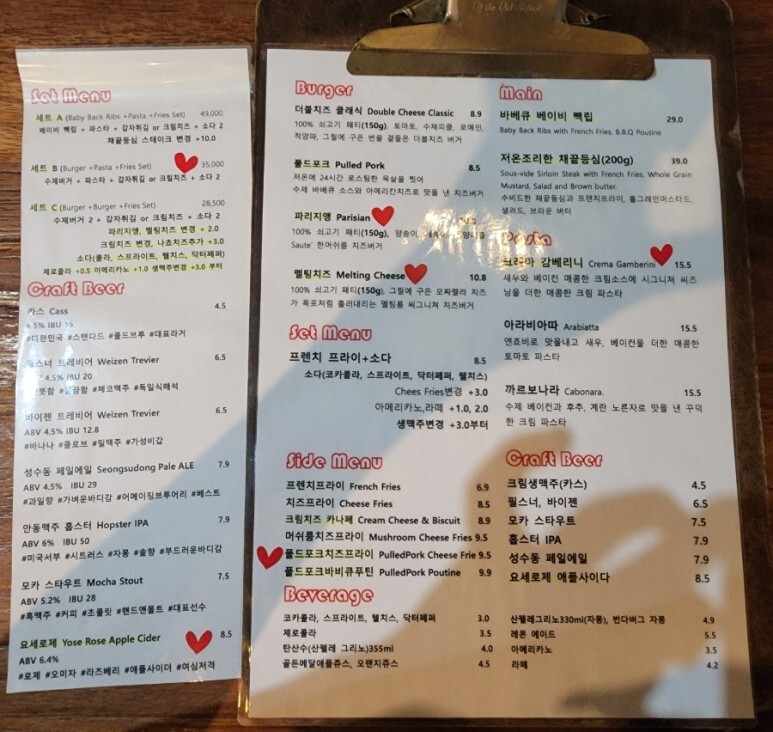 Set Menu
세트 A (Baby Back Ribs +Pasta +Fries Set) 49,000
베이비 빽립 + 파스타 + 감자튀김 or 크림치즈 + 소다 2
채끝등심 스테이크 변경 +10.0
세트 B (Burger +Pasta +Fries Set) 35,000
수제버거 + 파스타 + 감자튀김 or 크림치즈 + 소다 2
세트 C (Burger +Burger +Fries Set) 28,500
수제버거 2 + 감자튀김 or 크림치즈 + 소다 2
파리지앵, 멜팅치즈 변경 + 2.0
크림치즈 변경, 나쵸치즈추가 +3.0
소다(콜라, 스프라이트, 웰치스, 닥터페퍼)
제로콜라 +0.5 아메리카노 +1.0 생맥주변경 +3.0 부터
Craft Beer
카스 Cass 4.5
4.5% IBU 15
#대한민국 #스탠다드 #콜드브루 #대표라거
트레비어 Weizen Trevier 6.5
4.5% IBU 20
#체코맥주 #독일식해석
바이젠 트레비어 Weizen Trevier 6.5
ABV 4.5% IBU 12.8
#바나나 #클로브 #밀맥주 #가성비갑
성수동 페일에일 Seongsudong Pale ALE 7.9
ABV 4.5% IBU 29
#과일향 #가벼운바디감 #어메이징브루어리 #베스트
안동맥주 홉스터 Hopster IPA 7.9
ABV 6% IBU 50
#미국서부 #시트러스 #자몽 #솔향 #부드러운바디감
모카 스타우트 Mocha Stout 7.5
ABV 5.2% IBU 28
#흑맥주 #커피 #초콜릿 #핸드앤몰트 #대표선수
요세로제 Yose Rose Apple Cider 8.5
ABV 6.4%
#로제 #오미자 #라즈베리 #애플사이다 #여심저격
Burger
더블치즈 클래식 Double Cheese Classic 8.9
100% 쇠고기 패티(150g), 토마토, 수제피클, 로메인,
적양파, 그릴에 구운 번을 곁들은 더블치즈 버거
풀드포크 Pulled Pork 8.5
저온에 24시간 로스팅한 목살을 찢어
수제 바베큐 소스와 아메리칸치즈로 맛을 낸 치즈버거
파리지앵 Parisian
100% 쇠고기 패티(150g), 양송이
Saute' 한머쉬룸 치즈버거
멜팅치즈 Melting Cheese 10.8
100% 쇠고기 패티(150g), 그릴에 구운 모짜렐라 치즈
가 폭포처럼 흘러내리는 멜팅룸 씨그니쳐 치즈버거
Set Menu
프렌치 프라이+소다 8.5
소다(코카콜라, 스프라이트, 닥터페퍼, 웰치스)
Chees Fries변경 +3.0
아메리카노,라떼 +1.0, 2.0
생맥주변경 +3.0부터
Side Menu
프렌치프라이 French Fries 6.9
치즈프라이 Cheese Fries 8.5
크림치즈 카나페 Cream Cheese & Biscuit 8.9
머쉬룸치즈프라이 Mushroom Cheese Fries 9.5
풀드포크치즈프라이 PulledPork Cheese Frie 9.5
풀드포크바비큐푸틴 PulledPork Poutine 9.9
Beverage
코카콜라, 스프라이트, 웰치스, 닥터페퍼 3.0
제로콜라 3.5
탄산수(산펠레 그리노)355ml 4.0
골든메달애플쥬스, 오렌지쥬스 4.5
Main
바베큐 베이비 빽립 29.0
Baby Back Ribs with French Fries, B.B.Q Poutine
저온조리한 채끝등심(200g) 39.0
Sous-vide Sirloin Steak with French Fries, Whole Grain
Mustard, Salad and Brown butter.
수비드한 채끝등심과 프렌치프라이, 홀그레인머스타드,
샐러드, 브라운 버터
Pasta
크레마 감베리니 Crema Gamberini 15.5
새우와 베이컨 매콤한 크림소스에 시그니쳐 씨즈
닝을 더한 매콤한 크림 파스타
아라비아따 Arabiatta 15.5
앤쵸비로 맛을내고 새우, 베이컨을 더한 매콤한
토마토 파스타
까르보나라 Cabonara. 15.5
수제 베이컨과 후추, 계란 노른자로 맛을 낸 꾸덕
한 크림 파스타
Craft Beer
크림생맥주(카스) 4.5
필스너, 바이젠 6.5
모카 스타우트 7.5
홉스터 IPA 7.9
성수동 페일에일 7.9
요세로제 애플사이다 8.5
산펠레그리노330ml(자몽), 번다버그 자몽 4.9
레몬 에이드 5.5
아메리카노 3.5
라떼 4.2